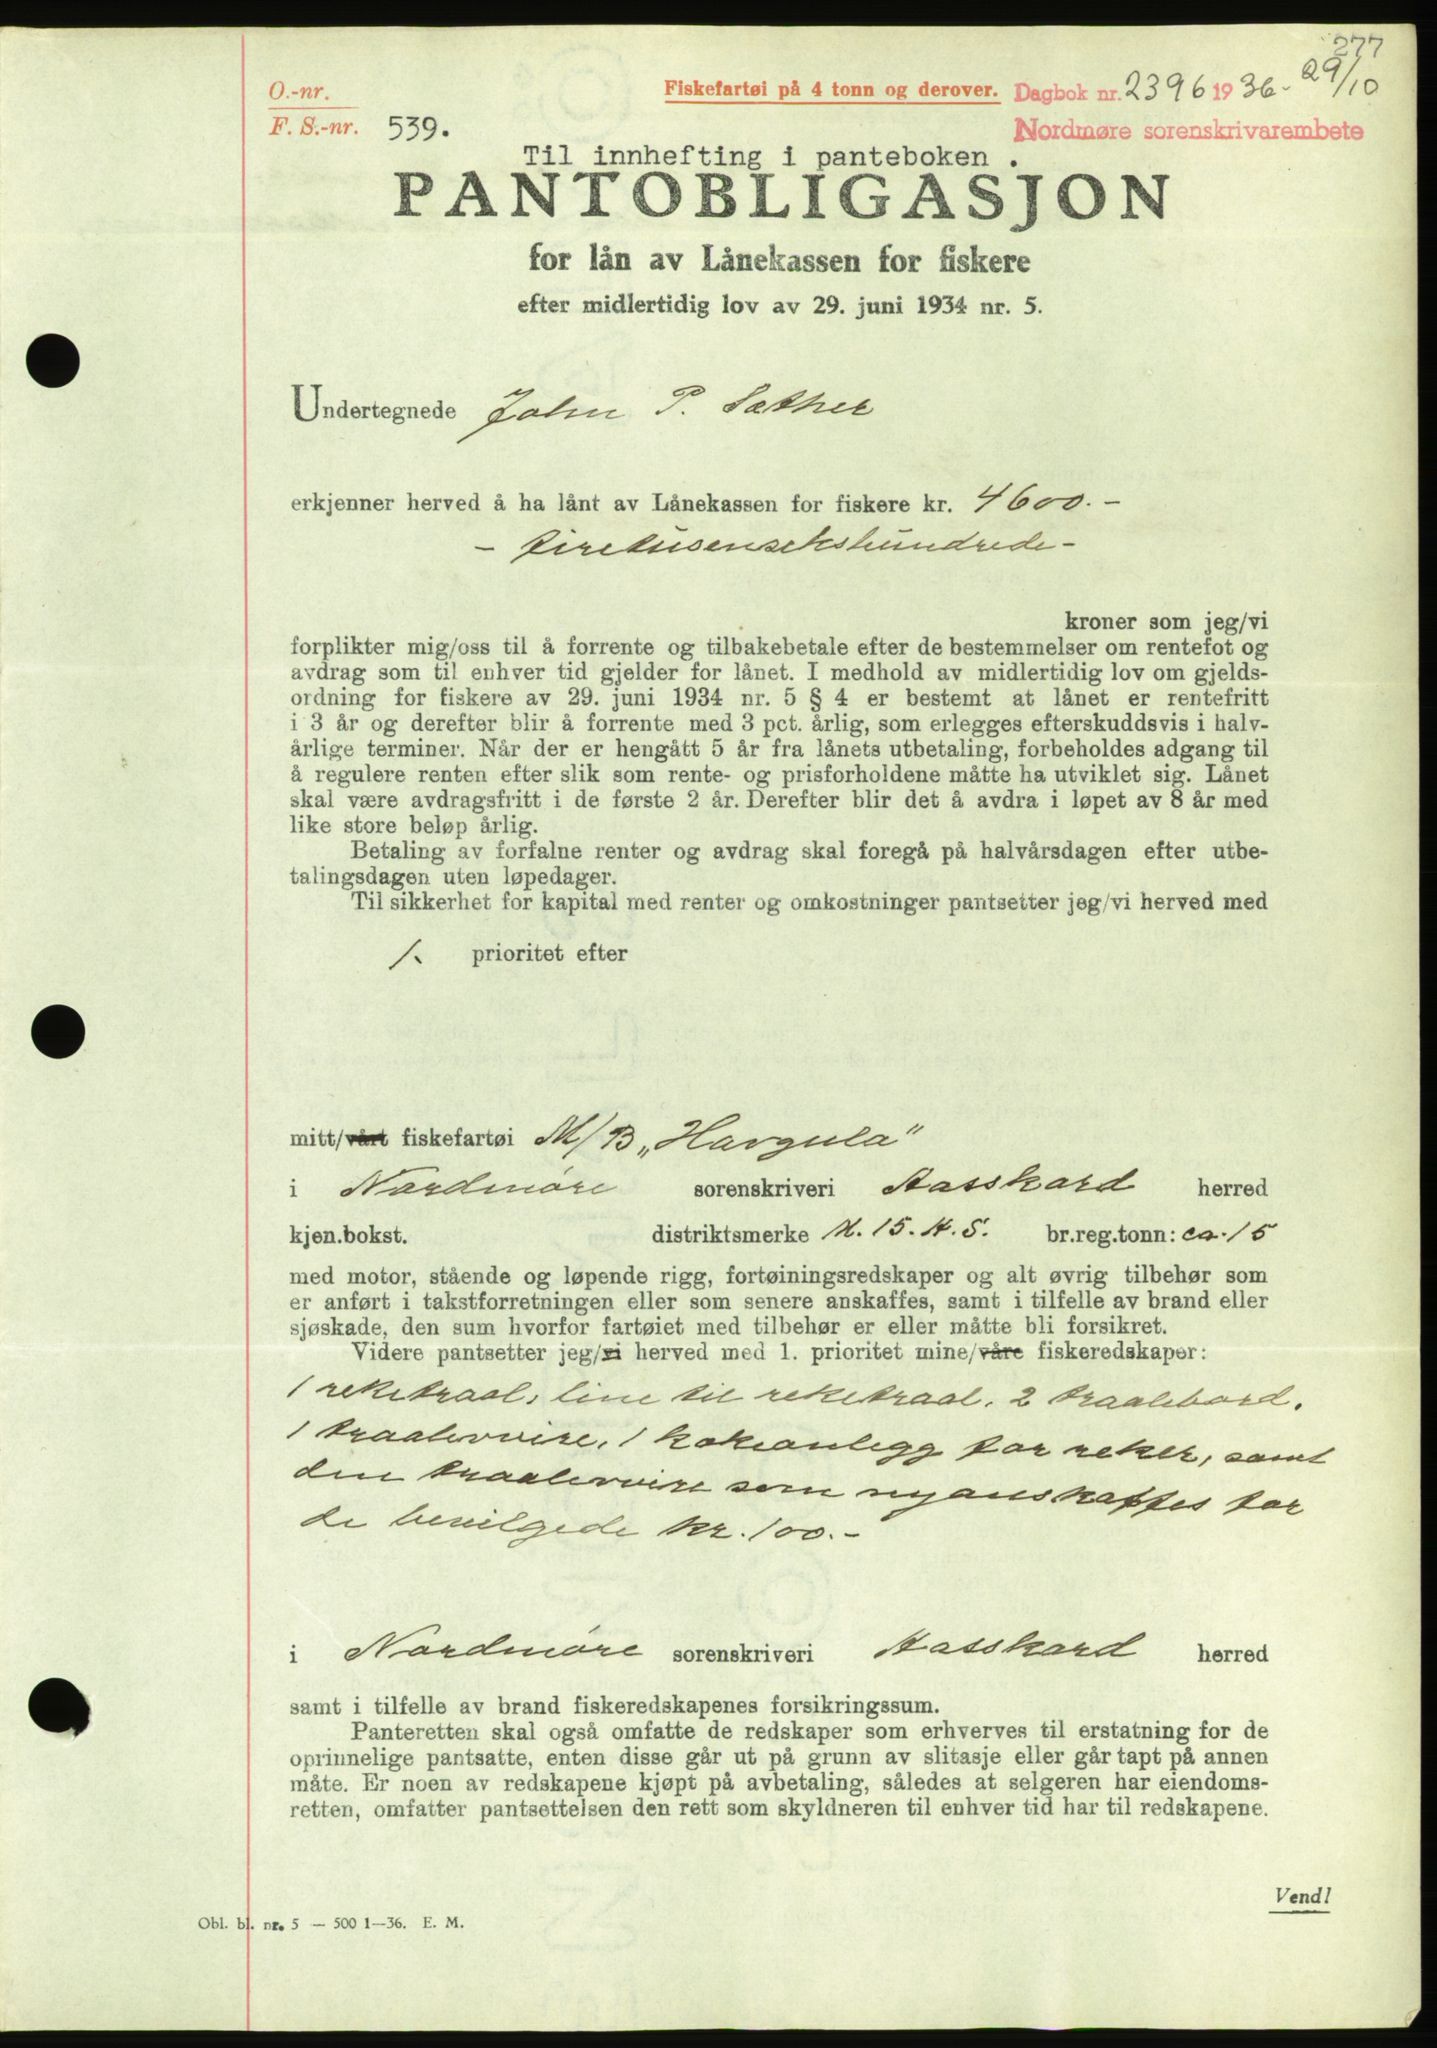 277
O.-nr.
Fiskefartøi på 4 tonn og derover. Dagbok nr. 2396 1936- 29/10
F. S.-nr. 539.
Nordmøre sorenskrivarembete
Til innhefting i panteboken .
PANTOBLIGASJON
for lån av Lånekassen for fiskere
efter midlertidig lov av 29. juni 1934 nr. 5.
Undertegnede John P. Sæther
erkjenner herved å ha lånt av Lånekassen for fiskere kr. 4600.-
- firetusensekshundrede -
kroner som jeg/vi
forplikter mig/oss til å forrente og tilbakebetale efter de bestemmelser om rentefot og
avdrag som til enhver tid gjelder for lånet. I medhold av midlertidig lov om gjelds-
ordning for fiskere av 29. juni 1934 nr. 5 § 4 er bestemt at lånet er rentefritt
i 3 år og derefter blir å forrente med 3 pct. årlig, som erlegges efterskuddsvis i halv-
årlige terminer. Når der er hengått 5 år fra lånets utbetaling, forbeholdes adgang til
å regulere renten efter slik som rente- og prisforholdene måtte ha utviklet sig. Lånet
skal være avdragsfritt i de første 2 år. Derefter blir det å avdra i løpet av 8 år med
like store beløp årlig.
Betaling av forfalne renter og avdrag skal foregå på halvårsdagen efter utbe-
talingsdagen uten løpedager.
Til sikkerhet for kapital med renter og omkostninger pantsetter jeg/vi herved med
1. prioritet efter
mitt/vårt fiskefartøi M/B „Havgula"
i Nordmøre sorenskriveri Aasskard herred
kjen.bokst. distriktsmerke M. 15. H. S. br.reg.tonn: ca. 15
med motor, stående og løpende rigg, fortøiningsredskaper og alt øvrig tilbehør som
er anført i takstforretningen eller som senere anskaffes, samt i tilfelle av brand eller
sjøskade, den sum hvorfor fartøiet med tilbehør er eller måtte bli forsikret.
Videre pantsetter jeg/vi herved med 1. prioritet mine/våre fiskeredskaper:
1 reketraal, line til reketraal, 2 traalebord,
1 traalervire, 1 kokeanlegg for reker, samt
den traalervire som nyanskaffes for
de bevilgede kr. 100.-
i Nordmøre sorenskriveri Aasskard herred
samt i tilfelle av brand fiskeredskapenes forsikringssum.
Panteretten skal også omfatte de redskaper som erhverves til erstatning for de
oprinnelige pantsatte, enten disse går ut på grunn av slitasje eller går tapt på annen
måte. Er noen av redskapene kjøpt på avbetaling, således at selgeren har eiendoms-
retten, omfatter pantsettelsen den rett som skyldneren til enhver tid har til redskapene.
Vend!
Obl. bl. nr. 5 — 500 1—36. E. M.